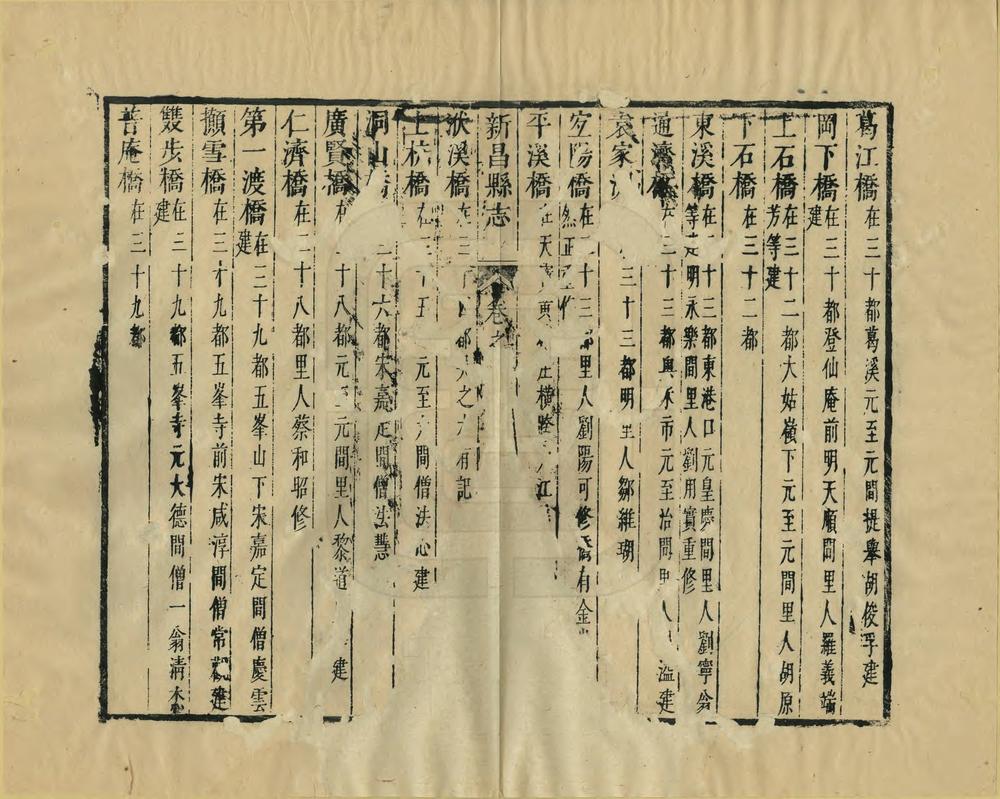 葛江橋在三十都葛溪元至元間提舉胡俊孚建
岡下橋在三十都登仙庵前明天順間里人羅義端建
上石橋在三十二都大姑嶺下元至元間里人胡原芳等建
下石橋在三十二都
東溪橋在 十三都東港口元皇慶間里人劉寧翁等建明永樂間里人劉用實重修
通濟 三十三都與禾市元至治間 人 溢建
袁家 三十三都明 里人鄒維瑚
安陽橋在 十三都里人劉陽可修 有金
平溪橋在天 橫 江
新昌縣志 卷之
洑溪橋在三 都 之 有記
上枋橋在三十五 元至 間僧法心建
洞山 二十六都宋嘉定間僧法慧
廣賢橋在 十八都元至元間里人黎道 建
仁濟橋在二十八都里人蔡和昭修
第一渡橋在三十九都五峯山下宋嘉定間僧慶雲建
顯雪橋在三十九都五峯寺前宋咸淳間僧常觀建
雙步橋在三十九都五峯寺元大德間僧一翁清 建
菩庵橋在三十九都